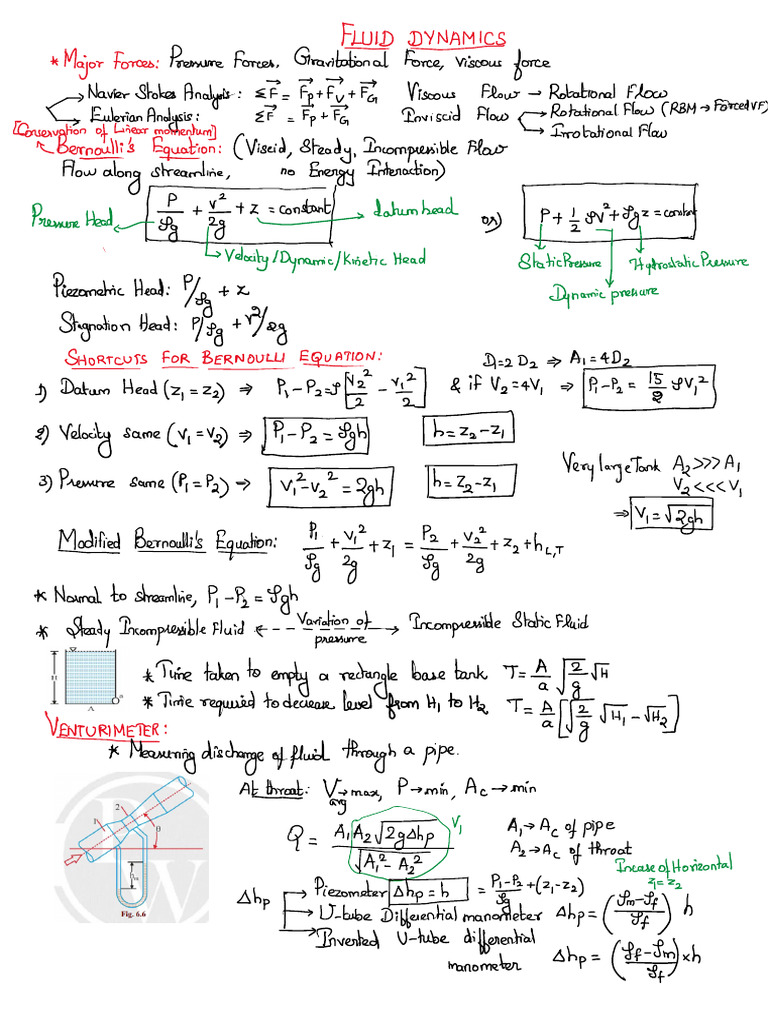 FLUID DYNAMICS
* Major Forces: Pressure Forces, Gravitational Force, viscous force
Navier Stokes Analysis: ΣF = F_P + F_V + F_G Viscous Flow → Rotational Flow
Eulerian Analysis: ΣF = F_P + F_G Inviscid Flow → Rotational Flow (RBM → Forced VF)
→ Irrotational Flow
[Conservation of Linear momentum]
Bernoulli's Equation: (Viscid, Steady, Incompressible Flow
Flow along streamline, no Energy Interaction)
P/ρg + v²/2g + z = constant
Pressure Head
datum head
Velocity/Dynamic/Kinetic Head
or) P + 1/2 ρv² + ρgz = constant
Static Pressure
Hydrostatic Pressure
Dynamic pressure
Piezometric Head: P/ρg + z
Stagnation Head: P/ρg + v²/2g
SHORTCUTS FOR BERNOULLI EQUATION:
D₁=2D₂ ⇒ A₁=4D₂
1) Datum Head (z₁=z₂) ⇒ P₁-P₂=ρ[v₂²/2 - v₁²/2] & if V₂=4V₁ ⇒ P₁-P₂ = 15/2 ρV₁²
2) Velocity same (v₁=v₂) ⇒ P₁-P₂ = ρgh h=z₂-z₁
3) Pressure same (P₁=P₂) ⇒ v₁²-v₂² = 2gh h=z₂-z₁
Very large Tank A₂>>>A₁
V₂<<<V₁
⇒ V₁=√2gh
Modified Bernoulli's Equation: P₁/ρg + v₁²/2g + z₁ = P₂/ρg + v₂²/2g + z₂ + h_L,T
* Normal to streamline, P₁-P₂ = ρgh
* Steady Incompressible Fluid <--- Variation of pressure ---> Incompressible Static Fluid
H
a
A
* Time taken to empty a rectangle base tank T = A/a √2/g √H
* Time required to decrease level from H₁ to H₂ T = A/a [√2/g √H₁ - √H₂]
VENTURIMETER:
* Measuring discharge of fluid through a pipe.
At throat: V_avg → max, P → min, A_c → min
Q = A₁A₂√2gΔhp / √A₁²-A₂²
V₁
A₁ → A_c of pipe
A₂ → A_c of throat
1
2
θ
Fig. 6.6
Incase of Horizontal
z₁=z₂
Δhp → Piezometer Δhp = h = P₁-P₂/ρg + (z₁-z₂)
→ U-tube Differential manometer Δhp = (ρm-ρf/ρf) h
→ Inverted U-tube differential manometer Δhp = (ρf-ρm/ρf) × h